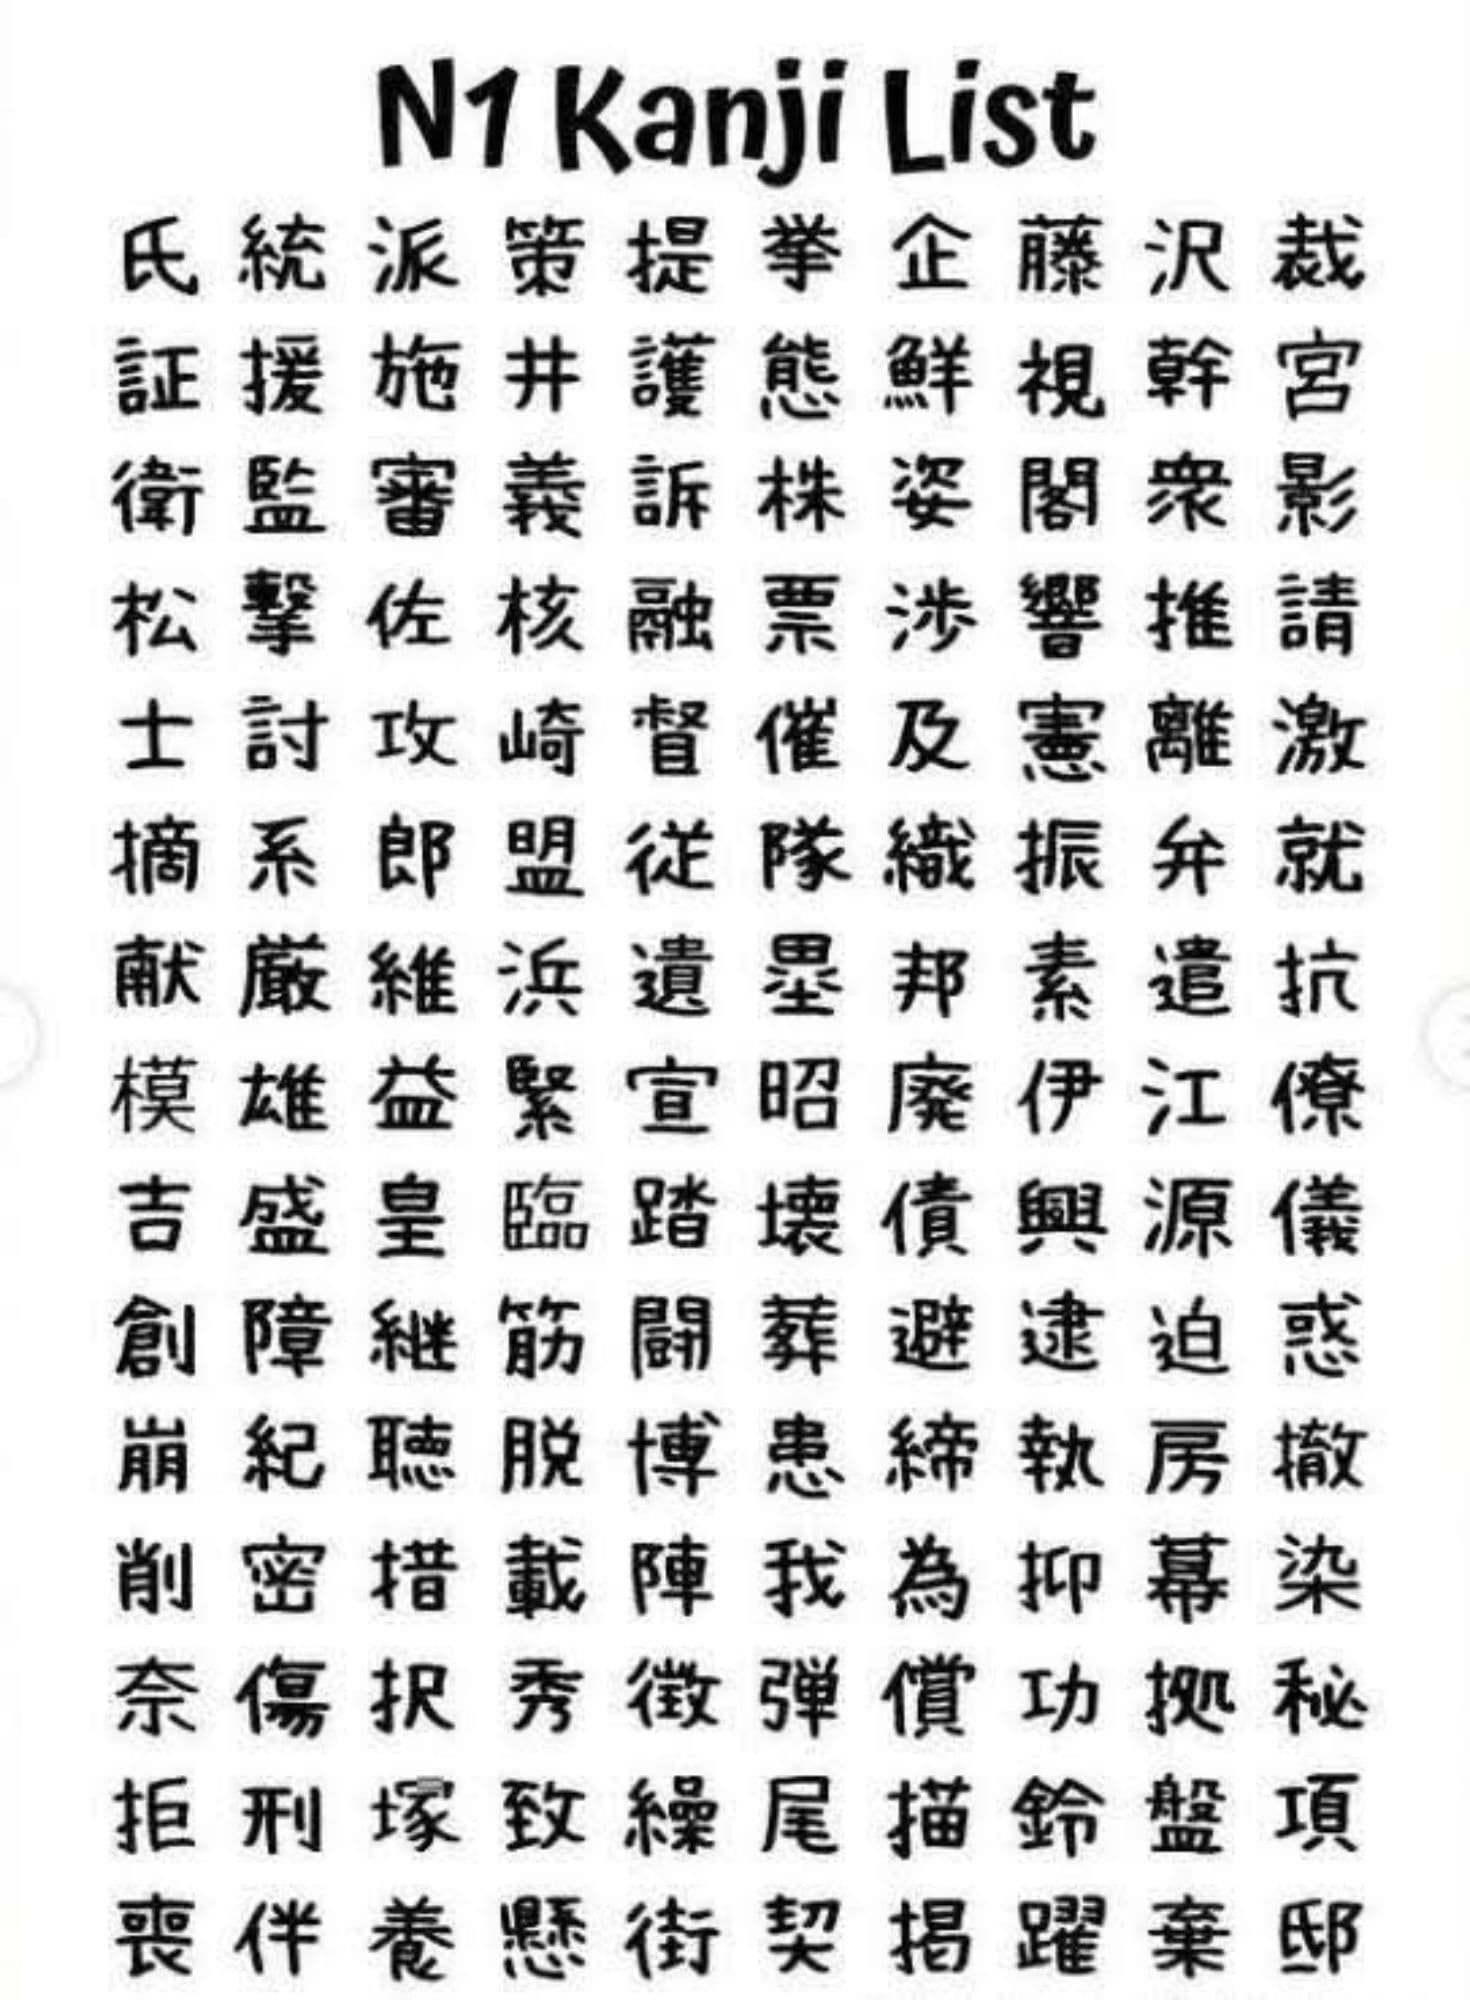 N1 Kanji List
氏 統 派 策 提 挙 企 藤 沢 裁
証 援 施 井 護 態 鮮 視 幹 宮
衛 監 審 義 訴 株 姿 閣 衆 影
松 撃 佐 核 融 票 渉 響 推 請
士 討 攻 崎 督 催 及 憲 離 激
摘 系 郎 盟 従 隊 織 振 弁 就
献 厳 維 浜 遺 塁 邦 素 遣 抗
模 雄 益 緊 宣 昭 廃 伊 江 僚
吉 盛 皇 臨 踏 壊 債 興 源 儀
創 障 継 筋 闘 葬 避 逮 迫 惑
崩 紀 聴 脱 博 患 締 執 房 撤
削 密 措 載 陣 我 為 抑 幕 染
奈 傷 択 秀 徴 弾 償 功 拠 秘
拒 刑 塚 致 繰 尾 描 鈴 盤 項
喪 伴 養 懸 街 契 掲 躍 棄 邸